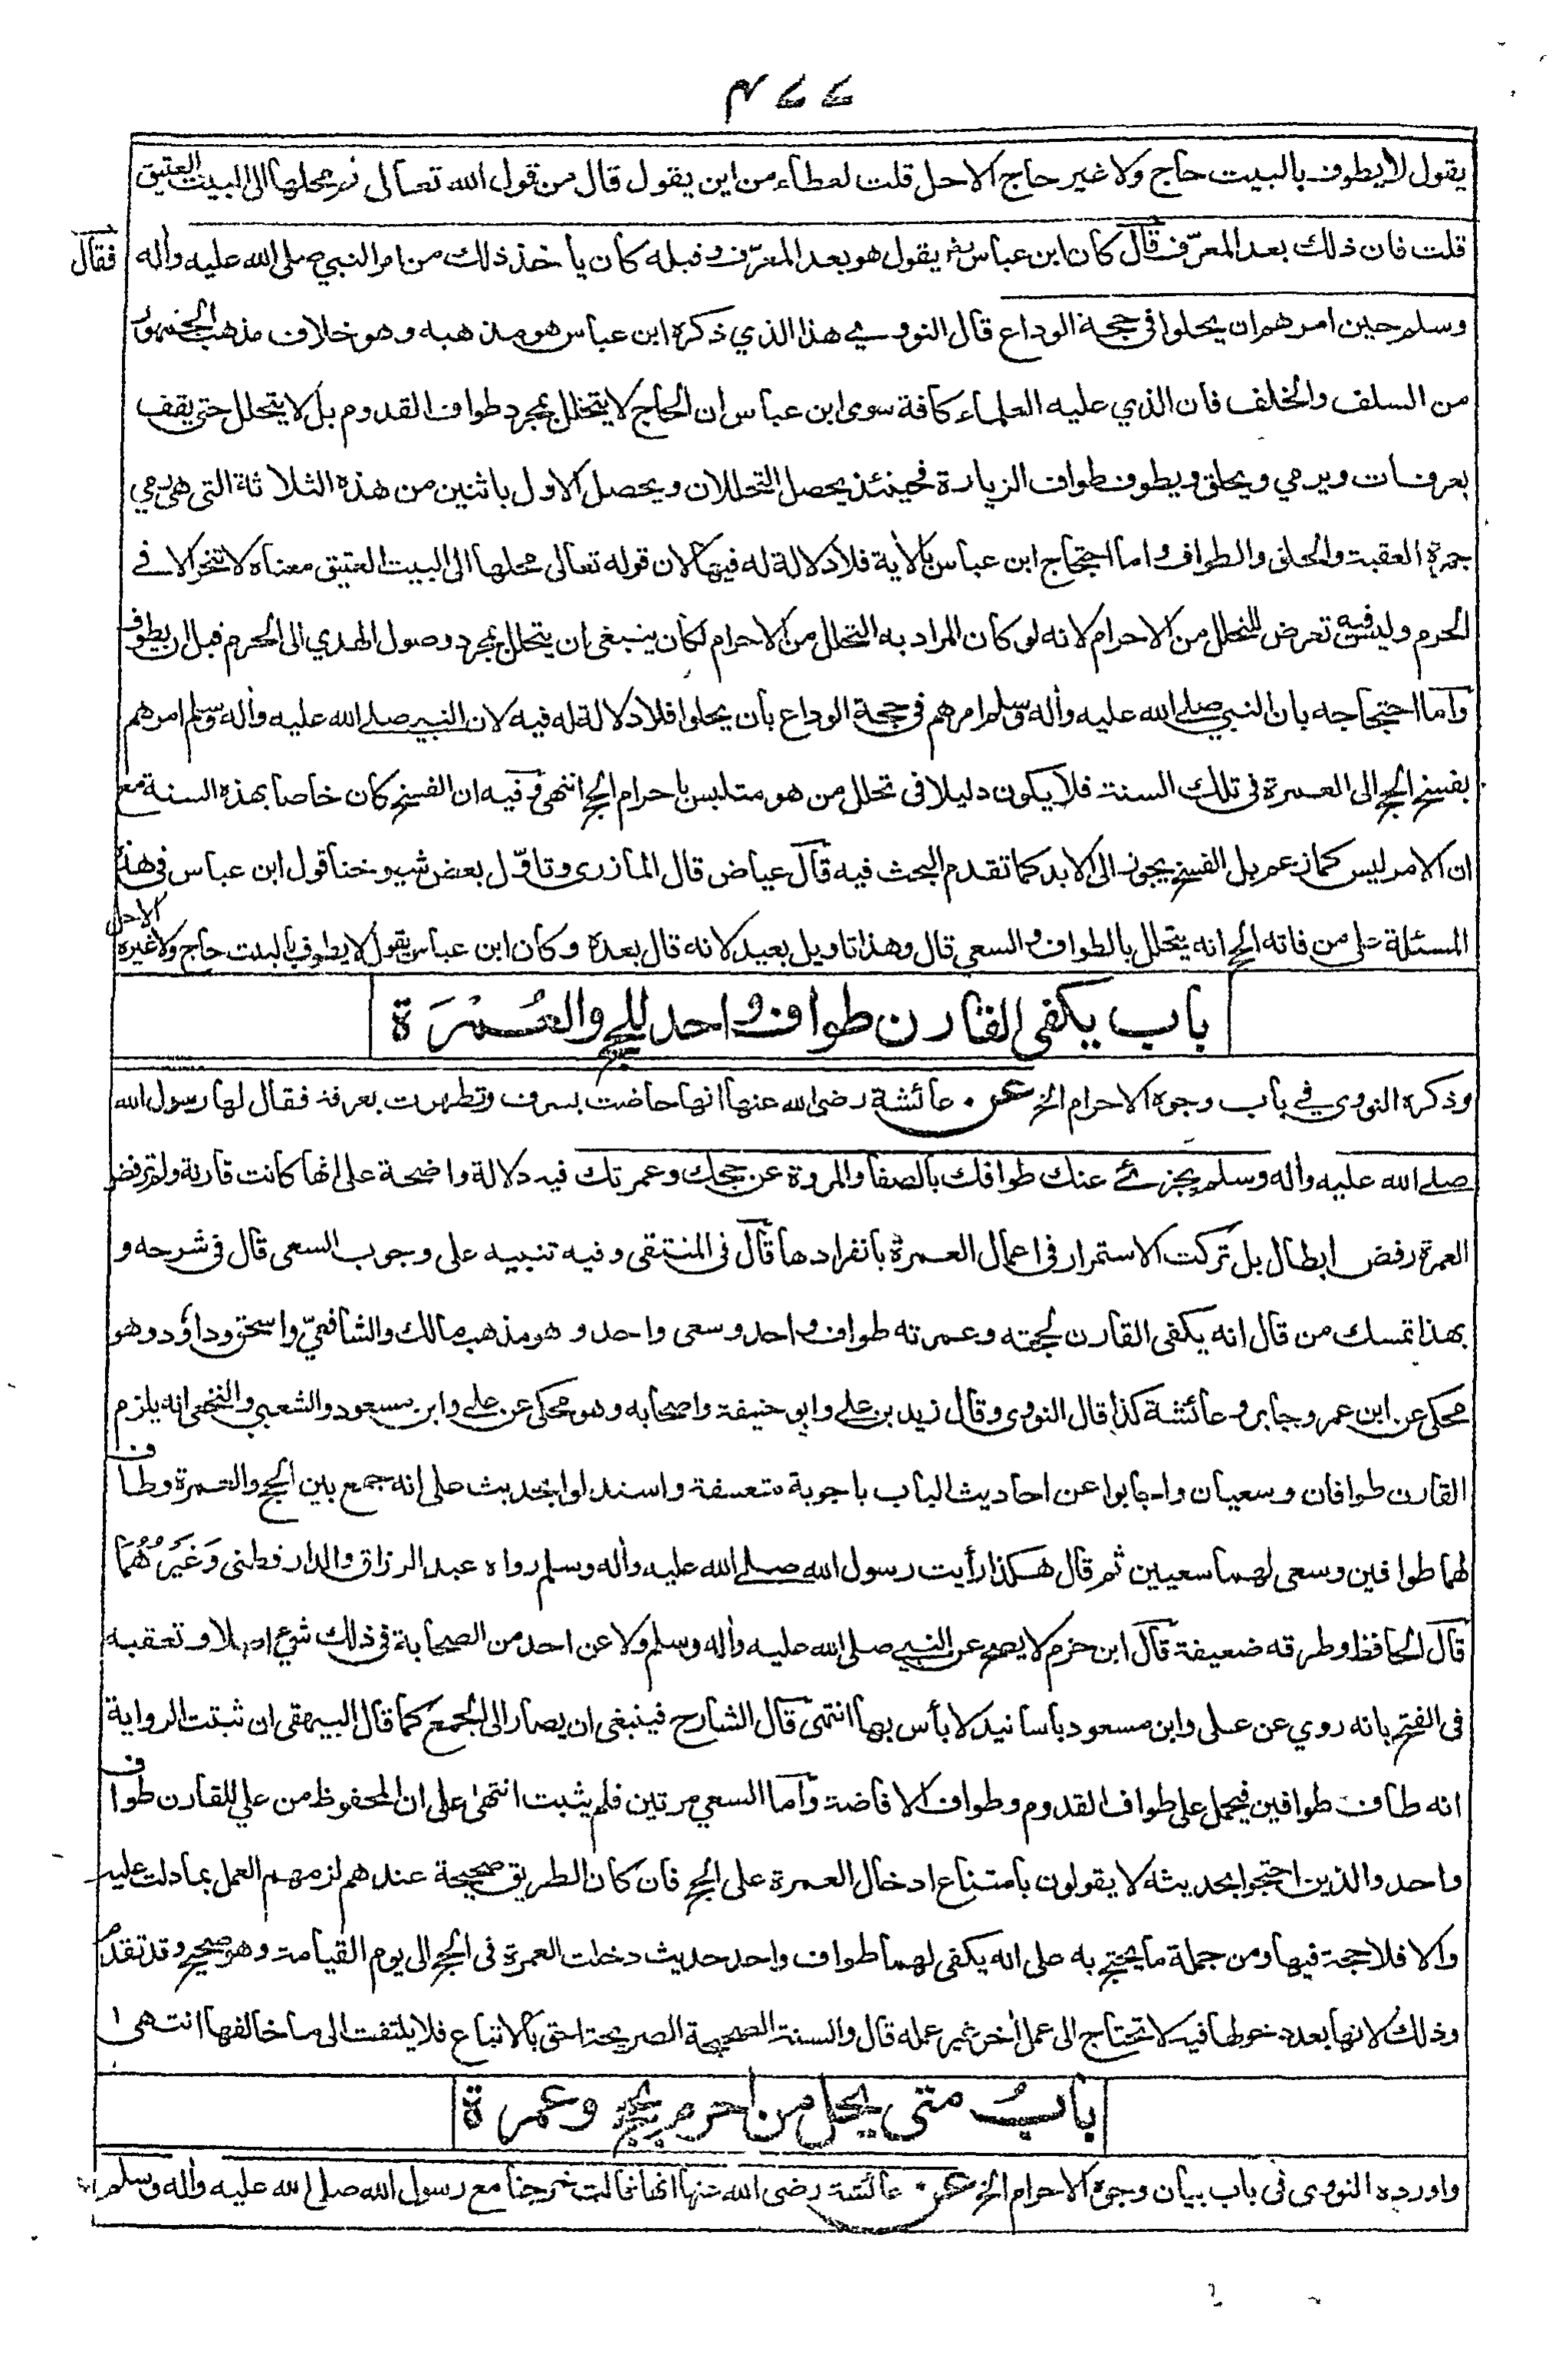 يقول لا يطوف بالبيت حاج ولا غير حاج الا حل قلت لعطاء من اين يقول قال من قول الله تعالى ثم محلها الى البيت العتيق
قلت فان ذلك بعد المعرّف قال كان ابن عباس يقول هو بعد المعرّف وقبله كان يأخذ ذلك من امر النبي صلى الله عليه وأله فقال
وسلم حين امرهم ان يحلوا في حجة الوداع قال النووي هذا الذي ذكره ابن عباس هو مذهبه وهو خلاف مذهب الجمهور
من السلف والخلف فان الذي عليه العلماء كافة سوى ابن عباس ان الحاج لا يتحلل بمجرد طواف القدوم بل لا يتحلل حتى يقف
بعرفات ويرمي ويحلق ويطوف طواف الزيارة فحينئذ يحصل التحللان ويحصل الاول باثنين من هذه الثلاثة التي هي رمي
جمرة العقبة والحلق والطواف واما احتجاج ابن عباس بالأية فلا دلالة له فيها لان قوله تعالى محلها الى البيت العتيق معناه لا تنحر الا في
الحرم وليس فيه تعرض للتحلل من الاحرام لانه لو كان المراد به التحلل من الاحرام لكان ينبغي ان يتحلل بمجرد وصول الهدي الى الحرم قبل ان يطوف
وأما احتجاجه بان النبي صلى الله عليه وأله وسلم امرهم في حجة الوداع بأن يحلوا فلا دلالة له فيه لان النبي صلى الله عليه وأله وسلم امرهم
بفسخ الحج الى العمرة في تلك السنة فلا يكون دليلا في تحلل من هو متلبس باحرام الحج انتهى وفيه ان الفسخ كان خاصا بهذه السنة مع
ان الامر ليس كما زعم بل الفسخ يجوز الى الابد كما تقدم البحث فيه قال عياض قال المازرى وتاوّل بعض شيوخنا قول ابن عباس في هذه
المسئلة على من فاته الحج انه يتحلل بالطواف والسعي قال وهذا تاويل بعيد لانه قال بعده وكان ابن عباس يقول لا يطوف بالبيت حاج ولا غيره الا حل
باب يكفى القارن طواف واحد للحج والعُمْرَة
وذكره النووي في باب وجوه الاحرام الخ عن عائشة رضي الله عنها انها حاضت بسرف وتطهرت بعرفة فقال لها رسول الله
صلى الله عليه وأله وسلم يجزئ عنك طوافك بالصفا والمروة عن حجك وعمرتك فيه دلالة واضحة على انها كانت قارنة ولم ترفض
العمرة رفض ابطال بل تركت الاستمرار في اعمال العمرة بانفرادها قال فى المنتقى وفيه تنبيه على وجوب السعى قال فى شرحه و
بهذا تمسك من قال انه يكفى القارن لحجته وعمرته طواف واحد وسعى واحد وهو مذهب مالك والشافعيّ واسحق وداؤد وهو
محكى عن ابن عمر وجابر وعائشة كذا قال النووى وقال زيد بن على وابو حنيفة واصحابه وهو محكى عن على وابن مسعود والشعبي والنخعى انه يلزم
القارن طوافان وسعيان واجابوا عن احاديث الباب باجوبة متعسفة واستدلوا بحديث على انه جمع بين الحج والعمرة وطاف
لهما طوافين وسعى لهما سعيين ثم قال هكذا رأيت رسول الله صلى الله عليه وأله وسلم رواه عبد الرزاق والدارقطنى وَغَيرُهُمَا
قال الحافظ وطرقه ضعيفة قال ابن حزم لا يصح عن النبى صلى الله عليه وأله وسلم ولا عن احد من الصحابة فى ذلك شئ اصلا وتعقبه
فى الفتح بانه روي عن على وابن مسعود باسانيد لا بأس بها انتهى قال الشارح فينبغى ان يصار الى الجمع كما قال البيهقى ان ثبتت الرواية
انه طاف طوافين فيحمل على طواف القدوم وطواف الافاضة وأما السعي مرتين فلم يثبت انتهى على ان المحفوظ من علي للقارن طواف
واحد والذين احتجوا بحديثه لا يقولون بامتناع ادخال العمرة على الحج فان كان الطريق صحيحة عندهم لزمهم العمل بما دلت عليه
والا فلا حجة فيها ومن جملة ما يحتج به على انه يكفى لهما طواف واحد حديث دخلت العمرة فى الحج الى يوم القيامة وهو صحيح وقد تقدم
وذلك لانها بعد دخولها فيه لا تحتاج الى عمل أخر غير عمله قال والسنة الصحيحة الصريحة احق بالاتباع فلا يلتفت الى ما خالفها انتهى
بابُ متى يحل من احرم بحج وعمرة
واورده النووى فى باب بيان وجوه الاحرام الخ عن عائشة رضى الله عنها انها قالت خرجنا مع رسول الله صلى الله عليه وأله وسلم